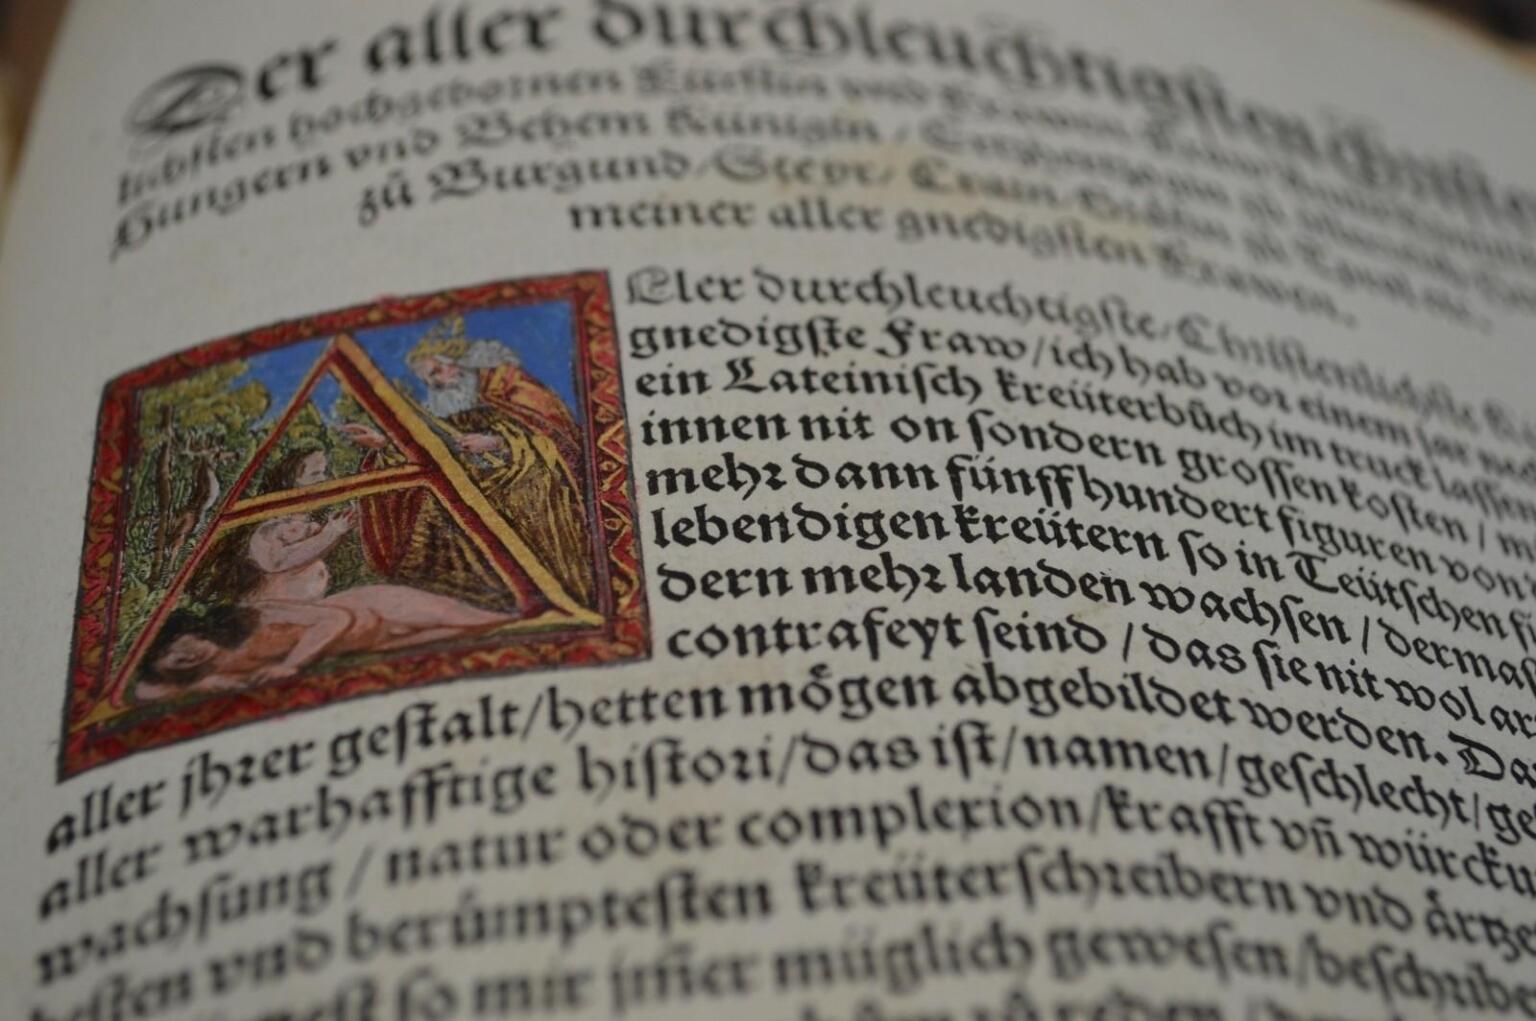 Der aller durchleuchtigsten Christen
lichsten hochgebornen Fürstin vnd Frawen
Hungern vnd Behem Künigin /
zů Burgund / Steyr / Crain
meiner aller gnedigsten Frawen.
A
Ller durchleuchtigste / Christenlichste
gnedigste Fraw / ich hab vor einem jar
ein Lateinisch kreüterbůch im truck lassen
innen nit on sondern grossen kosten /
mehr dann fünffhundert figuren von
lebendigen kreütern so in Teütschen
dern mehr landen wachsen / dermas
contrafeyt seind / das sie nit wol ar
aller jhrer gestalt / hetten mögen abgebildet werden. Da
aller warhafftige histori / das ist / namen / geschlecht / ge
wachsung / natur oder complexion / krafft vñ würcku
besten vnd berümptesten kreüterschreibern vnd ärtze
so mir jm̃er müglich gewesen / beschribe
zů reden